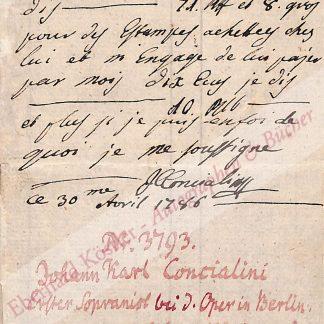 dis 71. Rt et 8 gros
pour des Estampes achettees chez
lui et m Engage de lui païer
par mois dix Ecus je dis
10. Rth
et plus si je puis enfoi de
quoi je me soussigne
ce 30 me Avril 1786 JConcialini
N. 3793.
Johann Karl Concialini
erster Sopranist bei d. Oper in Berlin.
Eberhard Köstler - Autographen & Bücher